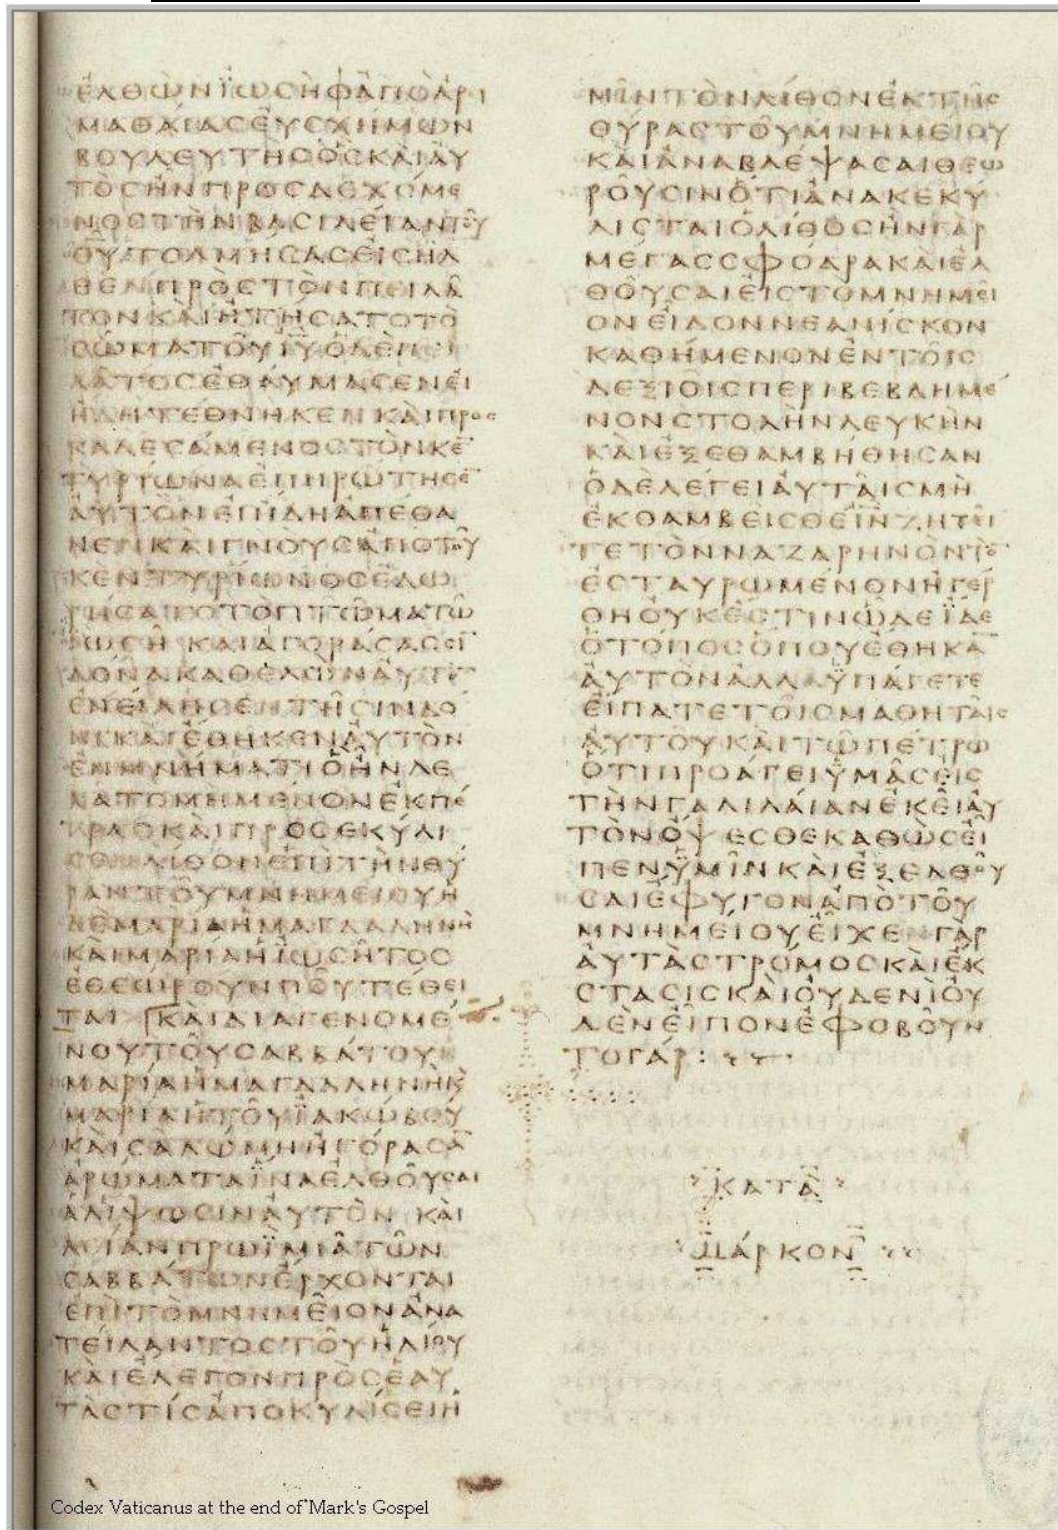 ἐλθὼνϊωϲὴφἀπὸἀρι
μαθαίαϲεὐϲχήμων
βουλευτὴϲὃϲκαὶαὐ
τὸϲἦνπροϲδεχόμε
νοϲτὴνβαϲιλείαντοῦ
θ̅υ̅τολμήϲαϲεἰϲῆλ
θενπρὸϲτὸνπειλᾶ
τονκαὶᾐτήϲατοτὸ
ϲῶματοῦι̅υ̅ὁδὲπει
λᾶτοϲἐθαύμαϲενεἰ
ἤδητέθνηκενκαὶπροϲ
καλεϲάμενοϲτὸνκε̅
τυρίωναἐπηρώτηϲε̅
αὐτὸνεἰἤδηἀπέθα
νενκαὶγνοὺϲἀπὸτοῦ
κεντυρίωνοϲἐδω
ρήϲατοτὸπτῶματῶ
ϊωϲῆ καὶἀγοράϲαϲϲι̅
δόνακαθελὼναὐτὸ̅
ἐνείληϲεντῇϲινδό
νικαὶἔθηκεναὐτὸν
ἐνμνήματιὃἦνλε
λατομημένονἐκπέ
τραϲκαὶπροϲεκύλι
ϲενλίθονἐπὶτὴνθύ
ραντοῦμνημείουἡ
δὲμαρίαἡμαγδαληνὴ
καὶμαρίαἡϊωϲῆτοϲ
ἐθεώρουνποῦτέθει
ται καὶδιαγενομέ
νουτοῦϲαββάτου
μαρίαἡμαγδαληνὴκ̀
μαρίαἡτοῦϊακώβου
καὶϲαλώμηἠγόραϲα̅
ἀρώματαἵναἐλθοῦϲαι
ἀλίψωϲιναὐτὸν καὶ
λίανπρωῒμιᾷτῶν
ϲαββάτωνἔρχονται
ἐπὶτὸμνημεῖονἀνα
τείλαντοϲτοῦἡλίου
καὶἔλεγονπρὸϲἑαυ
τάϲτίϲἀποκυλίϲειἡ
μῖντὸνλίθονἐκτῆϲ
θύραϲτοῦμνημείου
καὶἀναβλέψαϲαιθεω
ροῦϲινὅτιἀνακεκύ
λιϲταιὁλίθοϲἦνγὰρ
μέγαϲϲφόδρακαὶἐλ
θοῦϲαιεἰϲτὸμνημεῖ
ονεἶδοννεανίϲκον
καθήμενονἐντοῖϲ
δεξιοῖϲπεριβεβλημέ
νονϲτολὴνλευκὴν
καὶἐξεθαμβήθηϲαν
ὁδὲλέγειαὐταῖϲμὴ
ἐκθαμβεῖϲθει̅ν̅ζητεῖ
τετὸνναζαρηνὸντὸ̅
ἐϲταυρωμένονἠγέρ
θηοὐκἔϲτινὧδεἴδε
ὁτόποϲὅπουἔθηκα̅
αὐτὸνἀλλὰὑπάγετε
εἴπατετοῖϲμαθηταῖϲ
αὐτοῦκαὶτῷπέτρῳ
ὅτιπροάγειὑμᾶϲεἰϲ
τὴνγαλιλαίανἐκεῖαὐ
τὸνὄψεϲθεκαθὼϲεἶ
πενὑμῖνκαὶἐξελθοῦ
ϲαιἔφυγονἀπὸτοῦ
μνημείουεἶχενγὰρ
αὐτὰϲτρόμοϲκαὶἔκ
ϲταϲιϲκαὶοὐδενὶοὐ
δὲνεἶπονἐφοβοῦν
τογάρ:
κατὰ
μάρκον
Codex Vaticanus at the end of Mark's Gospel